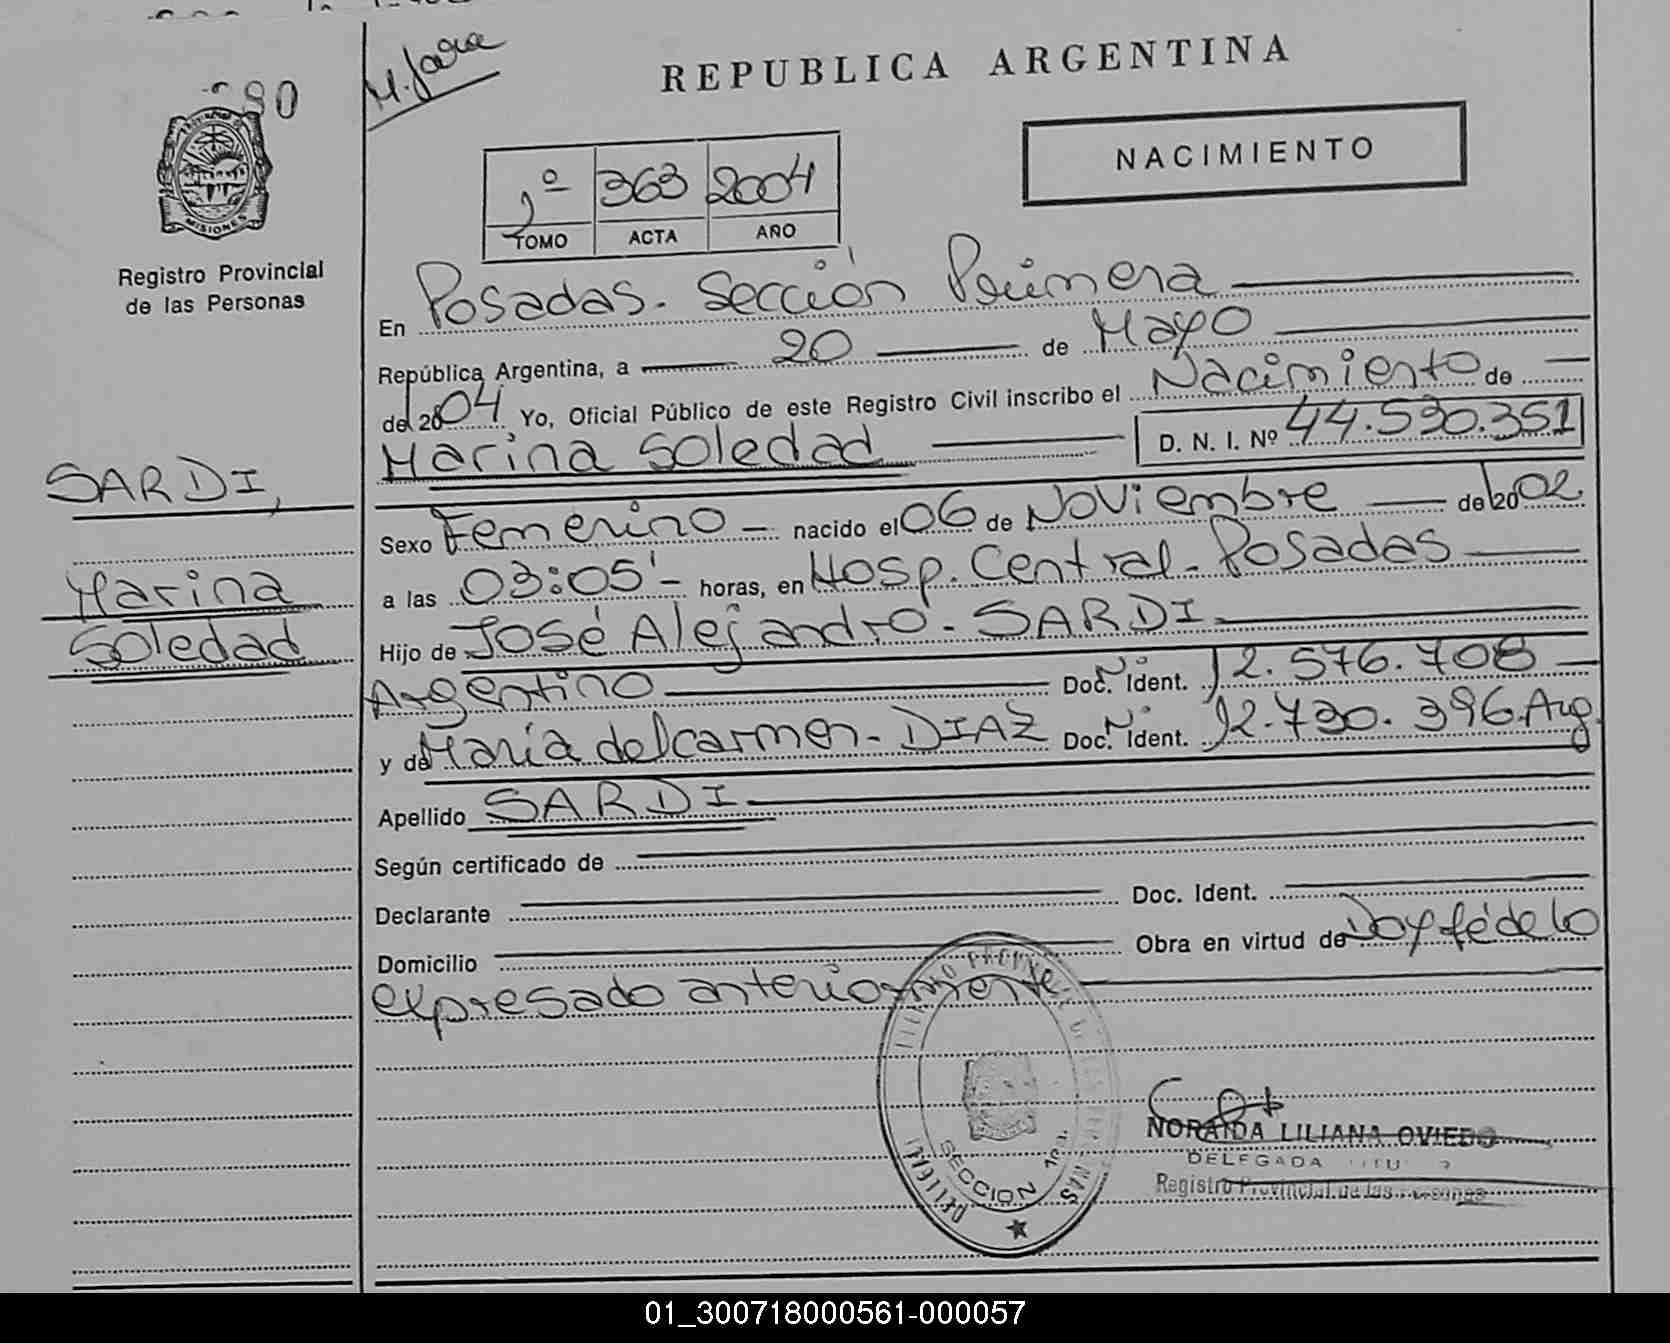 M. Jara
REPUBLICA ARGENTINA
NACIMIENTO
1º 363 2004
TOMO ACTA AÑO
MISIONES
Registro Provincial
de las Personas
En Posadas. Sección Primera
República Argentina, a 20 de Mayo
de 2004 Yo, Oficial Público de este Registro Civil inscribo el Nacimiento de
Marina Soledad D. N. I. Nº 44.590.351
SARDI,
Marina
Soledad
Sexo Femenino - nacido el 06 de Noviembre de 2002
a las 03:05'- horas, en Hosp. Central. Posadas
Hijo de José Alejandro. SARDI
Argentino Doc. Ident. Nº 12.576.708
y de María del carmen. DIAZ Doc. Ident. Nº 12.730.396 Arg.
Apellido SARDI
Según certificado de
Declarante Doc. Ident.
Domicilio Obra en virtud de Doy fé de lo
expresado anteriormente
SECCION 1ra.
NORAIDA LILIANA OVIEDO
DELEGADA
Registro Provincial de las Personas
01_300718000561-000057